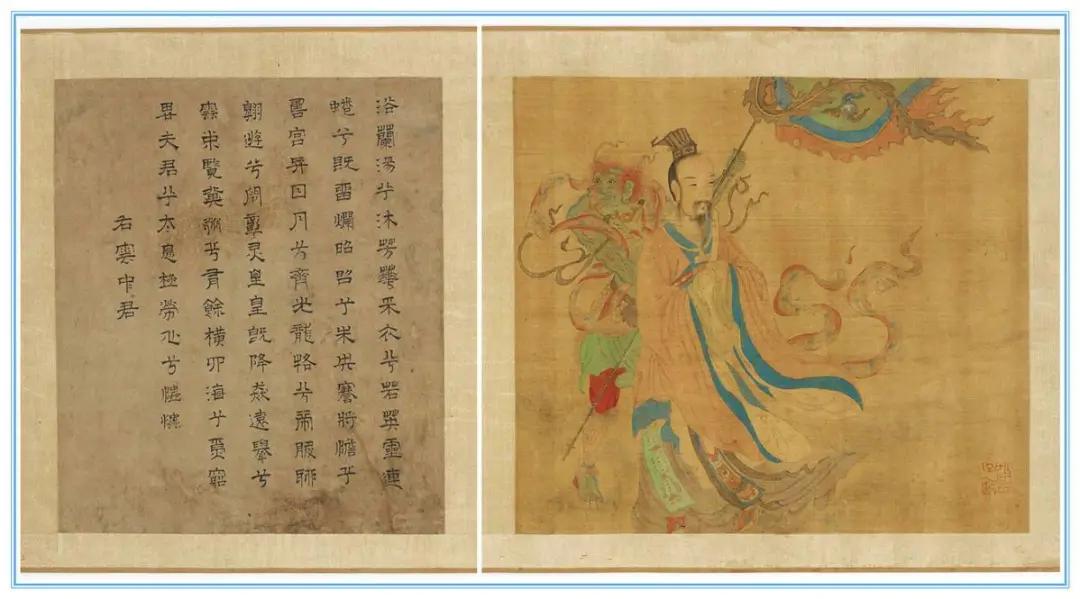 浴蘭湯兮沐芳華采衣兮若英靈連
蜷兮既留爛昭昭兮未央蹇將憺兮
壽宮與日月兮齊光龍駕兮帝服聊
翱遊兮周章灵皇皇既降猋遠舉兮
雲中覽冀州兮有餘橫四海兮焉窮
思夫君兮太息極勞心兮𢥞𢥞
右雲中君